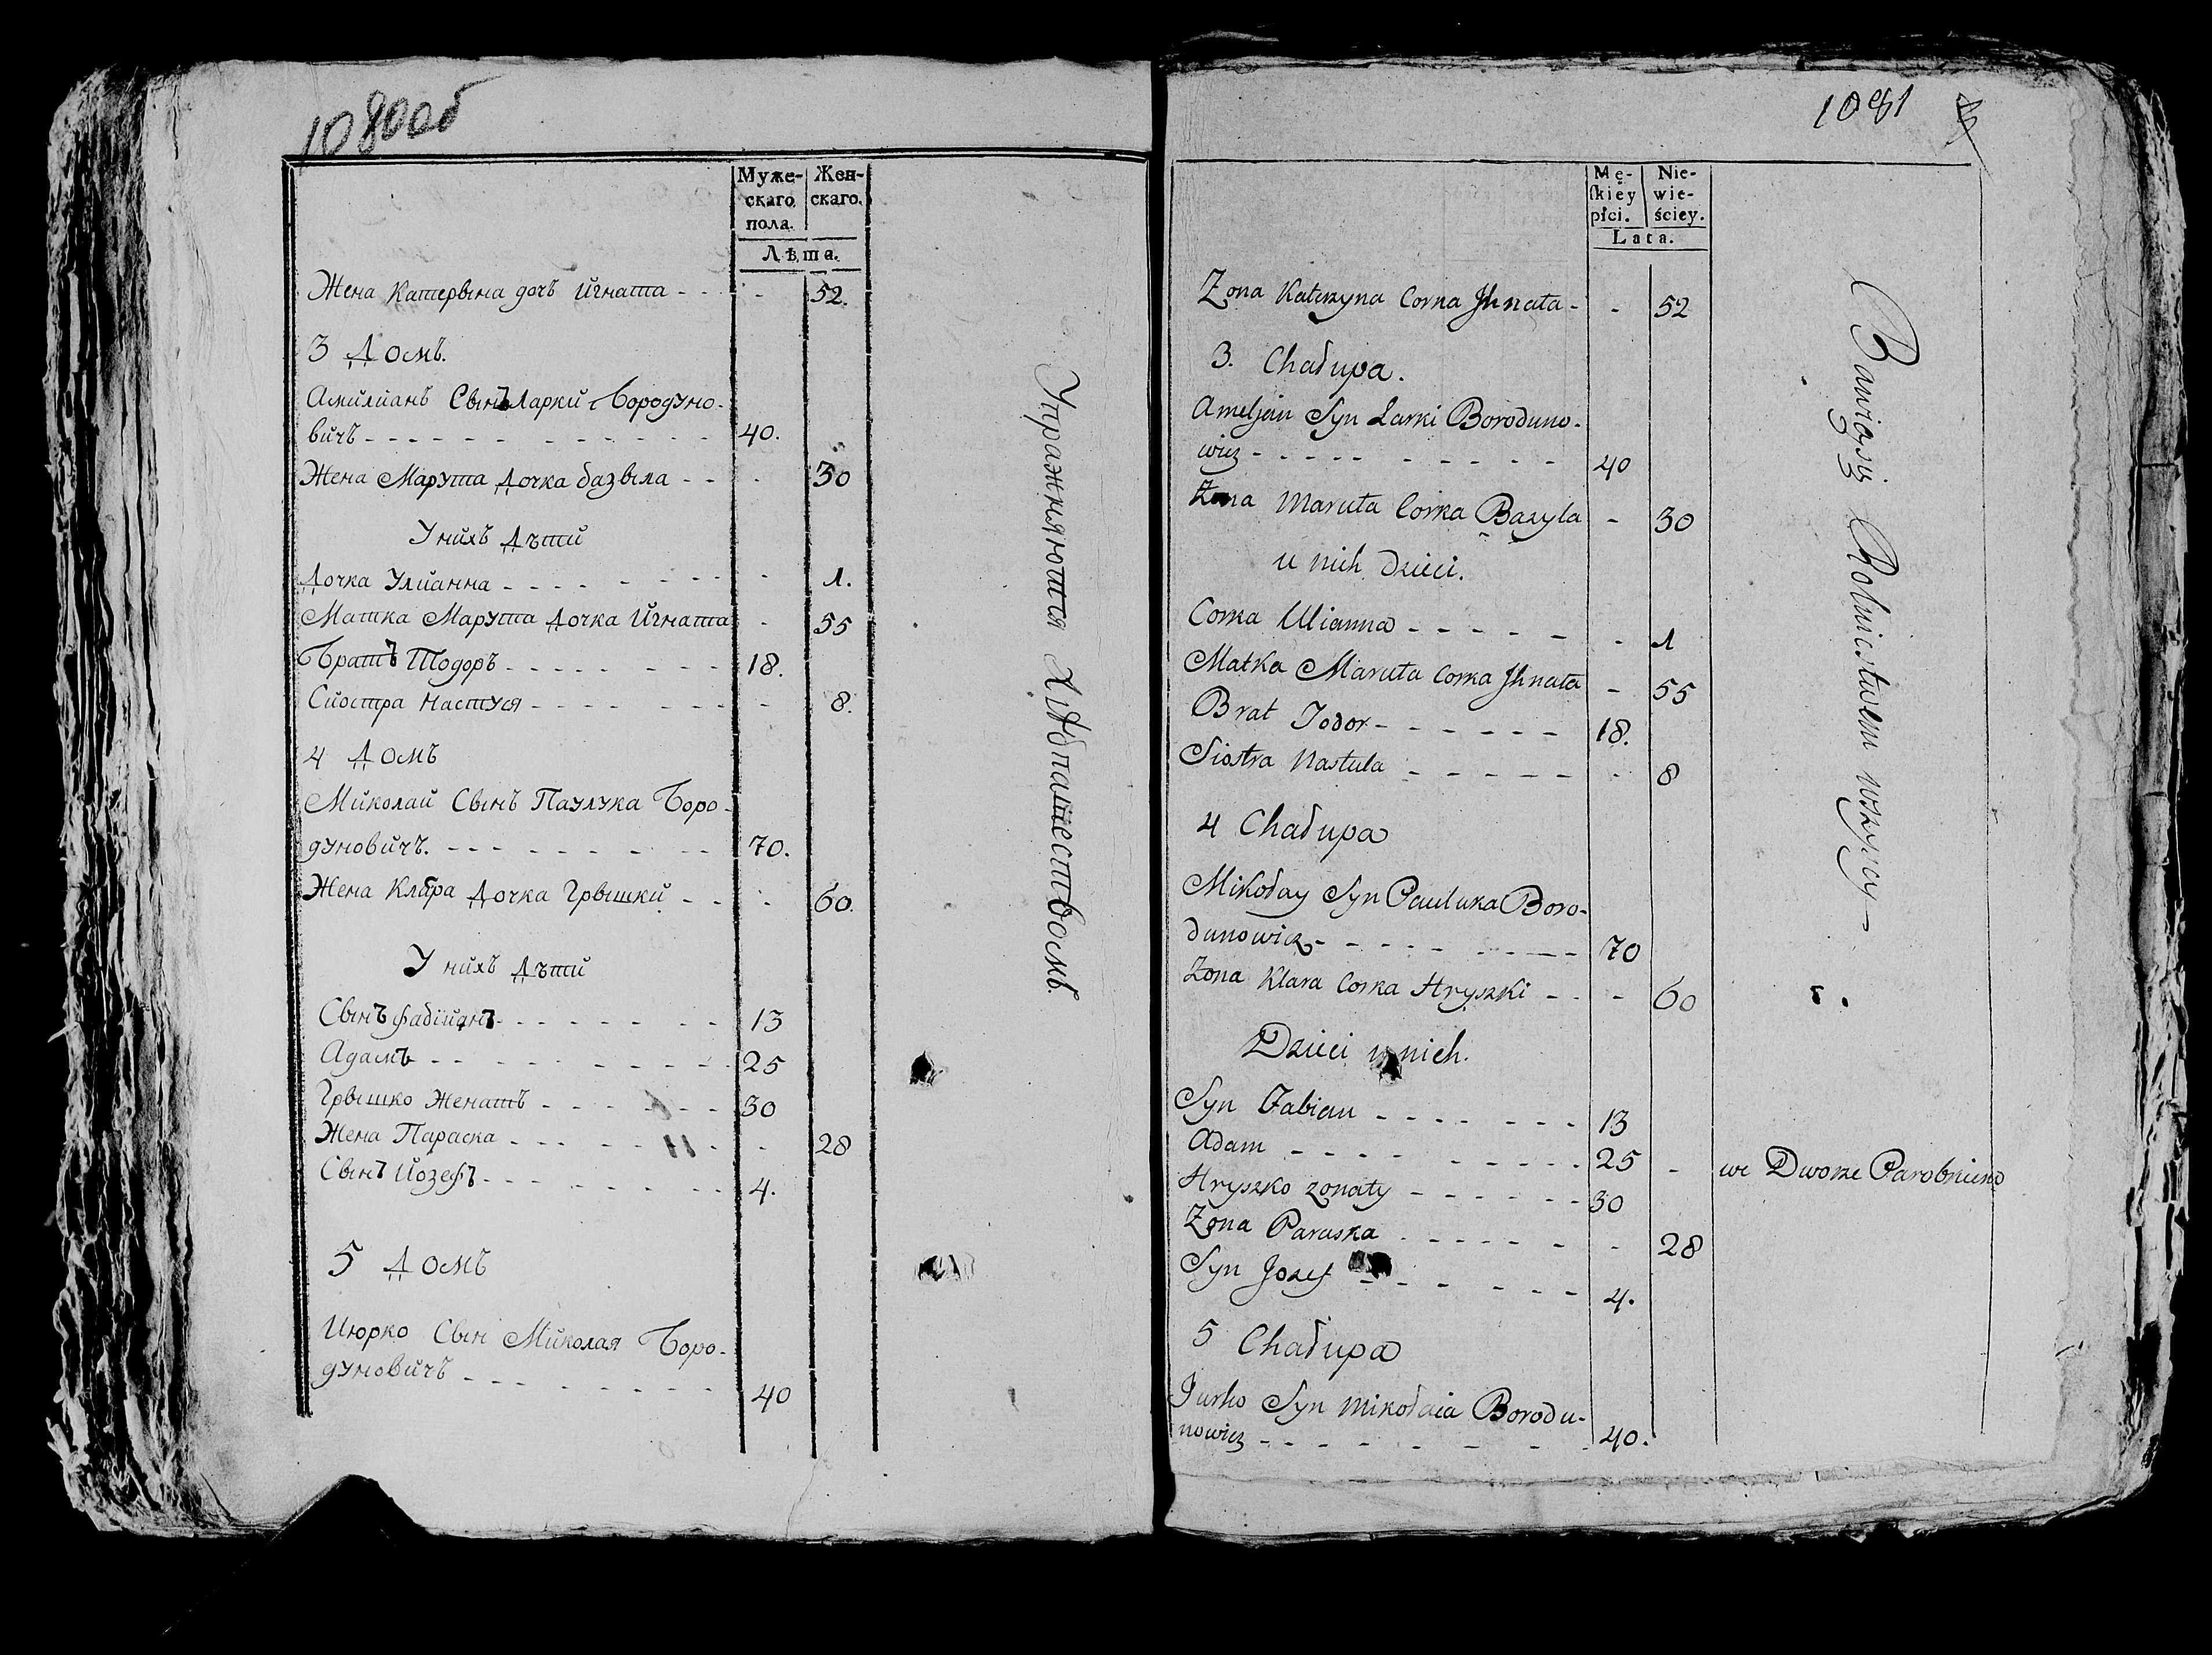 1080об
Муже-
скаго
пола.
Жен-
скаго.
Лѣта.
Жена Катерына дочъ Игната - - - 52.
3 Домъ.
Амилианъ Сынъ Ларки Бородуно-
вичъ - - - - - - 40.
Жена Марута Дочка базыла - - - 30
У нихъ Дѣти
Дочка Улианна - - - - - 1.
Матка Марута Дочка Игната - 55
Братъ Тодоръ - - - - - 18.
Сиостра Настуся - - - - - 8.
4 Домъ
Миколай Сынъ Паулука Боро-
дуновичъ. - - - - - - 70.
Жена Клара Дочка Грышки - - - 60.
У нихъ Дѣти
Сынъ Фабиянъ - - - - - 13
Адамъ - - - - - - 25
Грышко Женатъ - - - - - 30
Жена Параска - - - - - 28
Сынъ Иозефъ - - - - - 4.
5 Домъ
Июрко Сын Миколая Боро-
дуновичъ - - - - - - 40
Упражняются Хлѣбопашествомъ.
1081
Mę-
skiey
płci.
Nie-
wie-
ściey.
Lata.
Zona Katerzyna Corna Jhnata - - 52
3. Chałupa.
Ameljan Syn Larki Boroduno-
wicz - - - - - - 40
Zona Maruta Corka Bazyla - 30
u nich Dzieci.
Corka Ulianna - - - - - - 1
Matka Maruta Corka Jhnata - 55
Brat Todor - - - - - - 18.
Siostra Nastula - - - - - - 8
4 Chałupa
Mikołay Syn Pauluka Boro-
dunowicz - - - - - - 70
Zona Klara Corka Hryszki - - - 60
Dzieci u nich.
Syn Fabian - - - - - - 13
Adam - - - - - - 25 - we Dworze
Hryszko zonaty - - - - - - 30
Zona Paraska - - - - - - 28
Syn Jozef - - - - - 4.
5 Chałupa
Jurko Syn Mikołaia Borodu-
nowicz - - - - - - 40.
Bawią się Rolnictwem wszyscy -